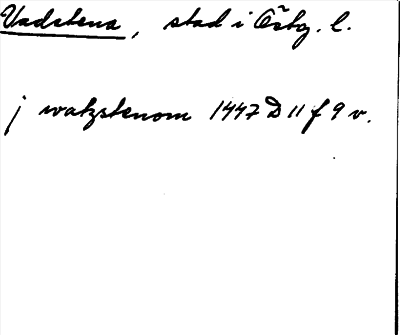 Vadstena, stad i Östg. l.
j watzstenom 1447 D 11 f 9 v.